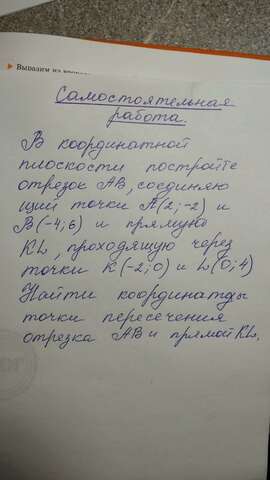 ▸ Выпазим из
Самостоятельная
работа.
В координатной
плоскости постройте
отрезок АВ, соединяю
щий точки А(2;-2) и
В(-4;6) и прямую
KL, проходящую через
точки К(-2;0) и L(0;4)
Найти координаты
точки пересечения
отрезка АВ и прямой KL.